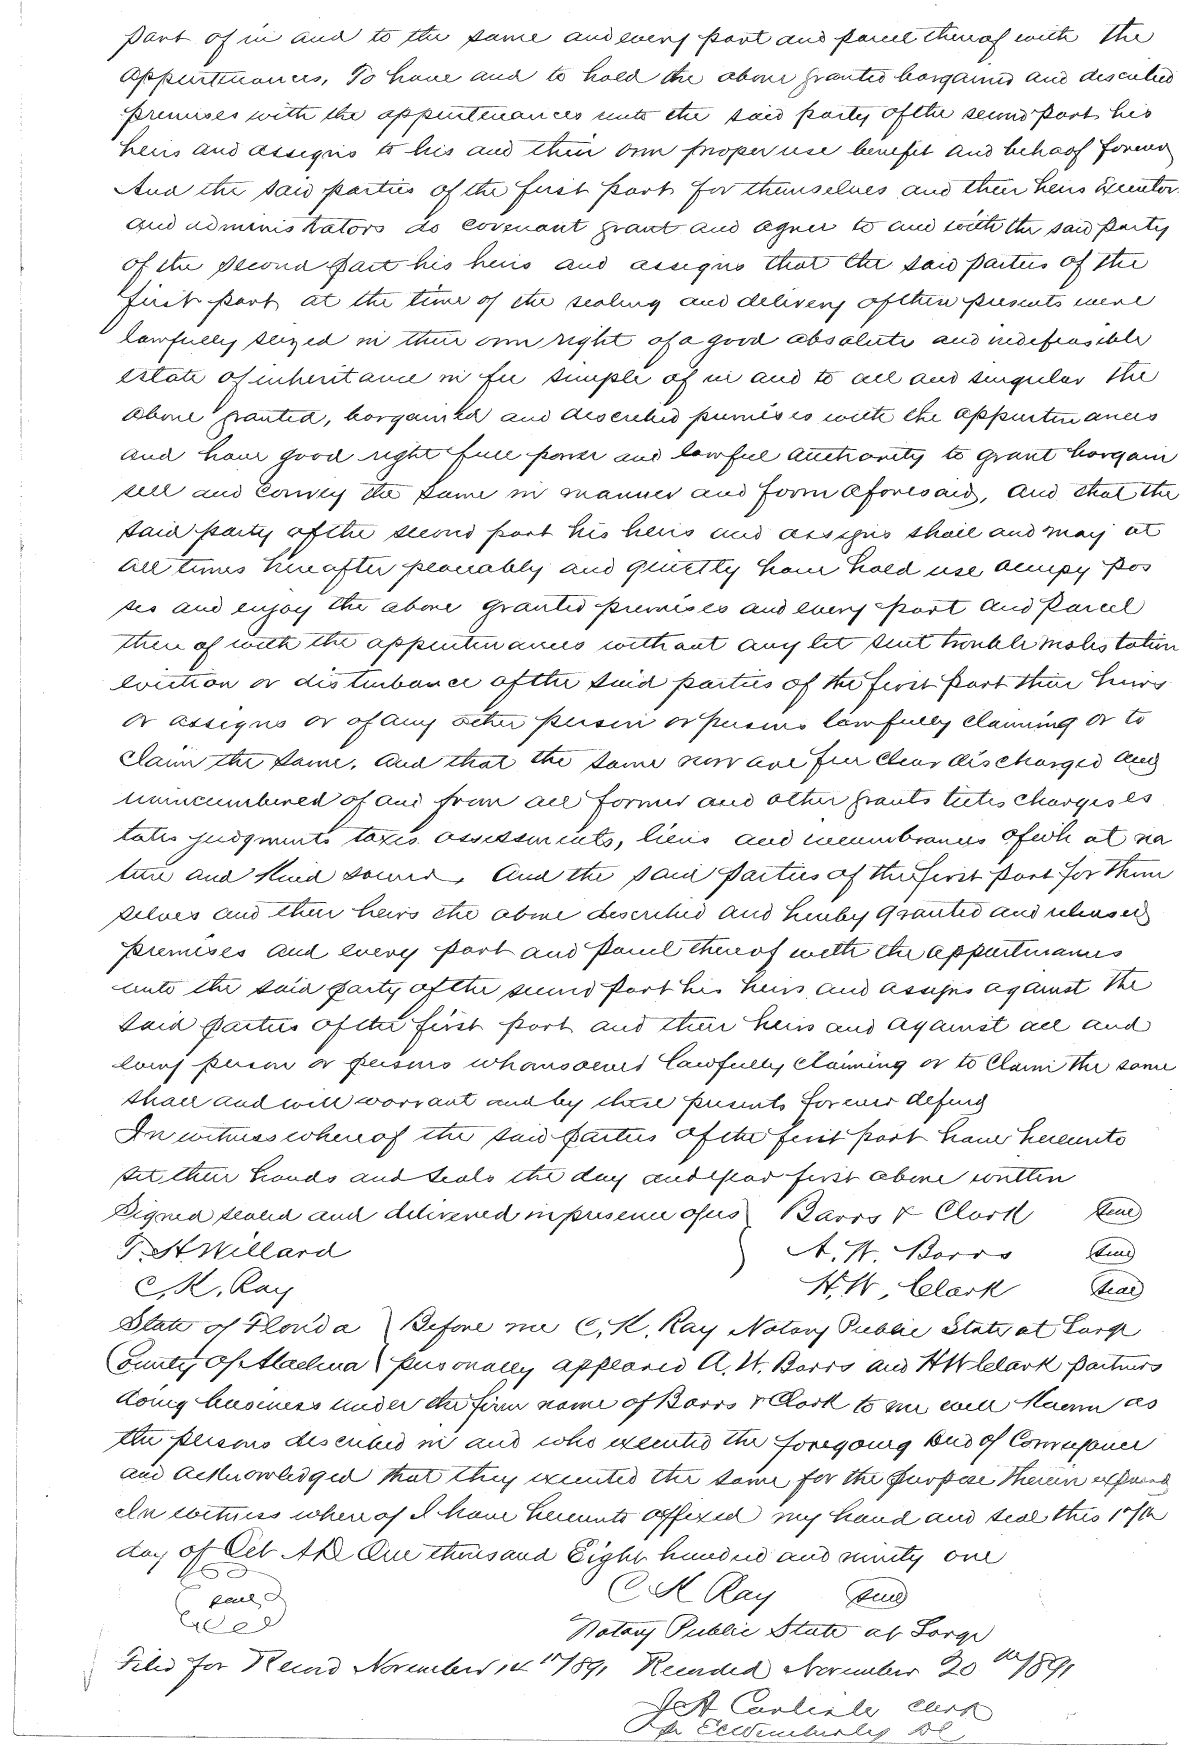 part of in and to the same and every part and parcel thereof with the
appurtenances, To have and to hold the above granted bargained and described
premises with the appurtenances unto the said party of the second part his
heirs and assigns to his and their own proper use benefit and behoof forever
And the said parties of the first part for themselves and their heirs Executor
and administrators do covenant grant and agree to and with the said party
of the second part his heirs and assigns that the said parties of the
first part at the time of the sealing and delivery of these presents were
lawfully seized in their own right of a good absolute and indefeasible
estate of inheritance in fee simple of in and to all and singular the
above granted, bargained and described premises with the appurtenances
and have good right full power and lawful authority to grant bargain
sell and convey the same in manner and form aforesaid, and that the
said party of the second part his heirs and assigns shall and may at
all times hereafter peaceably and quietly have hold use occupy pos
ses and enjoy the above granted premises and every part and parcel
there of with the appurtenances without any let suit trouble molestation
eviction or disturbance of the said parties of the first part their heirs
or assigns or of any other person or persons lawfully claiming or to
claim the same. And that the same now are free clear discharged and
unincumbered of and from all former and other grants titles charges es
tates judgments taxes assessments, liens and incumbrances of wh at na
ture and kind soever. And the said parties of the first part for them
selves and their heirs the above described and hereby granted and released
premises and every part and parcel thereof with the appurtenances
unto the said party of the second part his heirs and assigns against the
said parties of the first part and their heirs and against all and
every person or persons whomsoever lawfully claiming or to claim the same
shall and will warrant and by these presents forever defend
In witness whereof the said parties of the first part have hereunto
set their hands and seals the day and year first above written
Signed sealed and delivered in presence of us } Barrs & Clark Seal
T. H. Willard A. W. Barrs Seal
C. K. Ray H. W. Clark Seal
State of Florida } Before me C. K. Ray Notary Public State at Large
County of Alachua } personally appeared A. W. Barrs and H W Clark partners
doing business under the firm name of Barrs & Clark to me well known as
the persons described in and who executed the foregoing Deed of Conveyance
and acknowledged that they executed the same for the purpose therein expressed
In witness where of I have hereunto affixed my hand and seal this 10th
day of Oct AD One thousand Eight hundred and ninety one
Seal C K Ray Seal
Notary Public State at Large
Filed for Record November 14th 1891 Recorded November 20th 1891
J A Carlisle Clerk
Per E C Wimberly DC